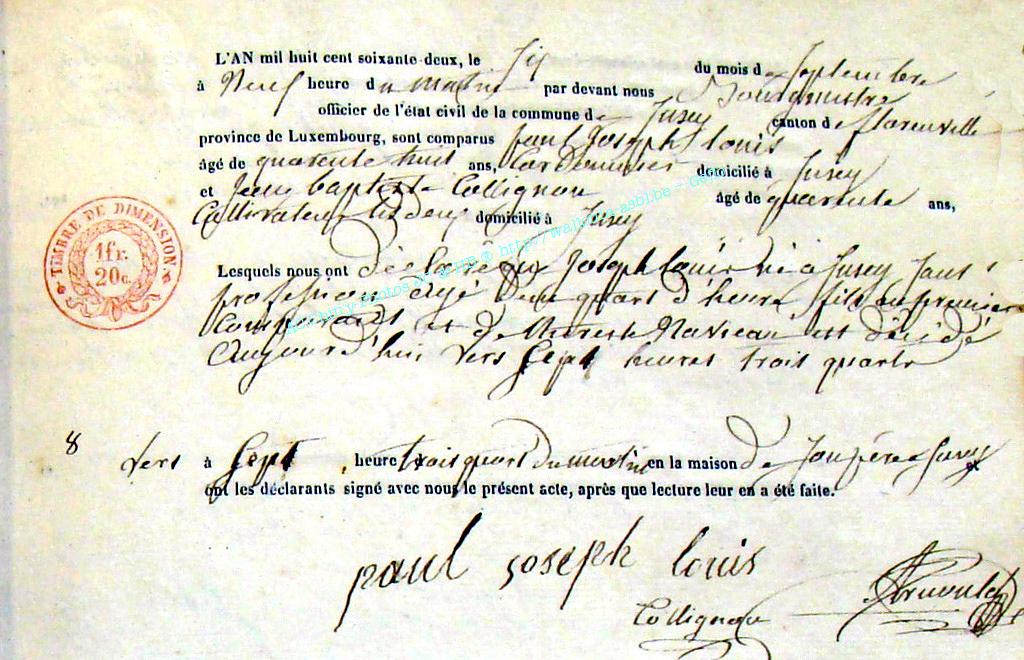 L'AN mil huit cent soixante-deux, le six du mois de Septembre
à Neuf heure du matin par devant nous Bourgmestre
officier de l'état civil de la commune de Jusey canton de florenville
province de Luxembourg, sont comparus paul Joseph louis
âgé de quarente huit ans, domicilié à Jusey
et Jean baptiste Collignon âgé de quarente ans,
Cultivateur les deux domicilié à Jusey
TIMBRE DE DIMENSION
1 fr.
20 c.
Lesquels nous ont déclaré que Joseph louis né à Jusey sans
profession agé deux quart d'heure fils du premier
Comparant et de est décédé
Aujourd'hui vers sept heures trois quarts
8 vers à sept, heure trois quart du matin en la maison de son père à Jusey
ont les déclarants signé avec nous le présent acte, après que lecture leur en a été faite.
paul joseph louis
Collignon